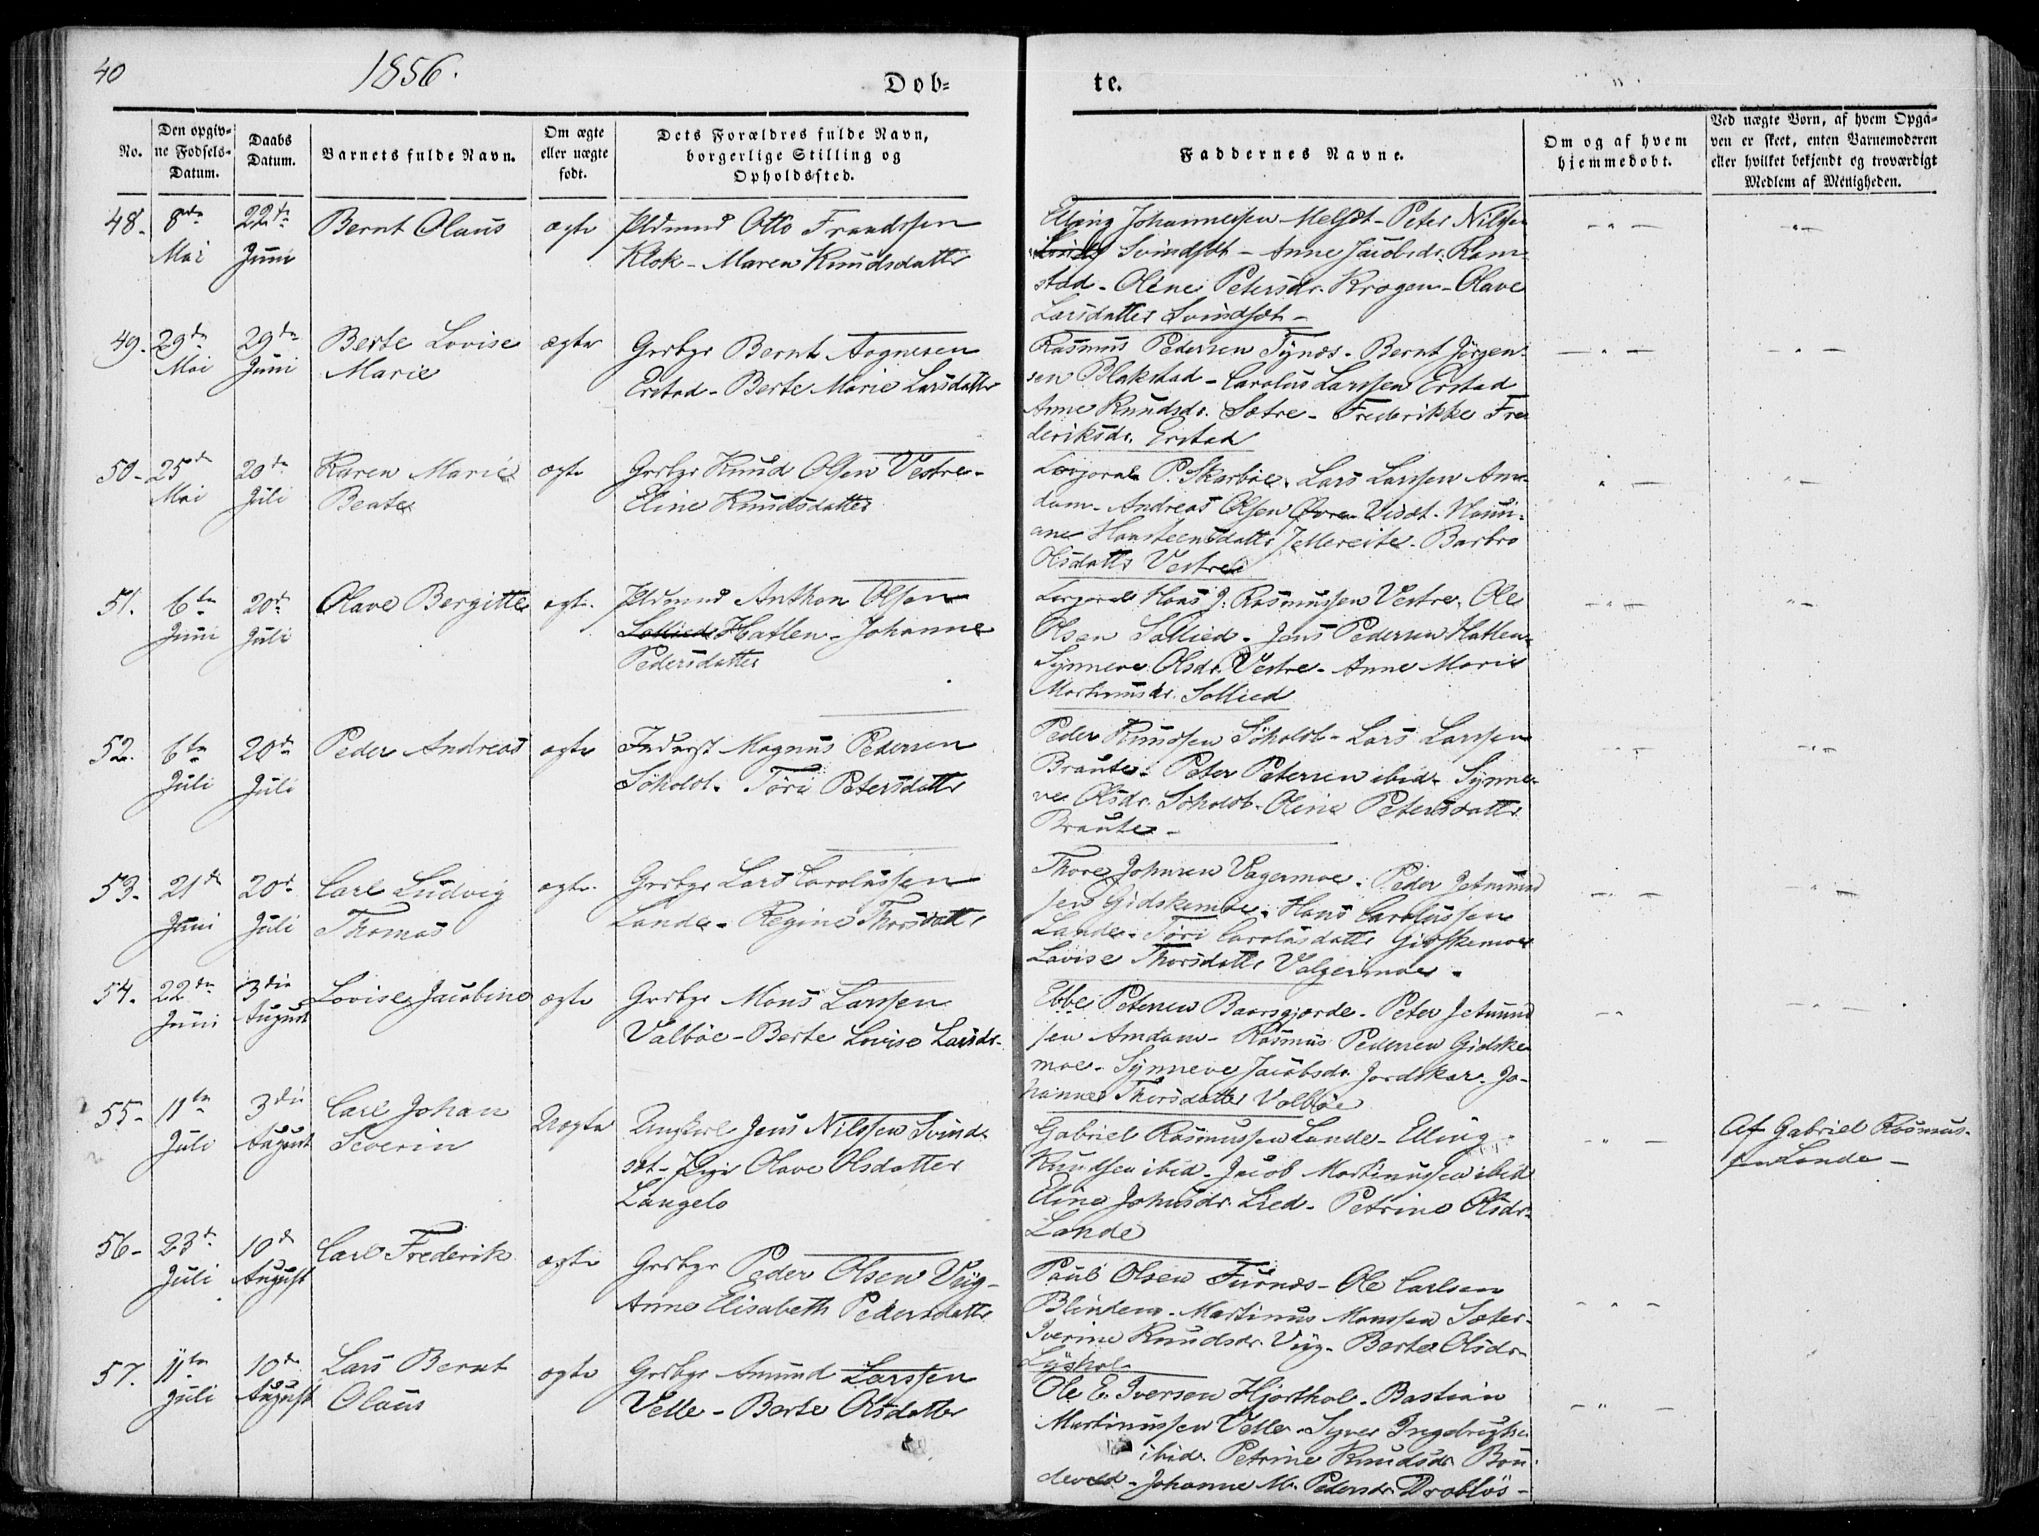 40
1856.
Døb=
te.
No.
Den opgiv=
ne Fødsels=
Datum.
Daabs
Datum.
Barnets fulde Navn.
Om ægte
eller uægte
født.
Dets Forældres fulde Navn,
borgerlige Stilling og
Opholdssted.
Faddernes Navne.
Om og af hvem
hjemmedøbt.
Ved uægte Børn, af hvem Opgi=
ven er skeet, enten Barnemoderen
eller hvilket bekjendt og troværdigt
Medlem af Menigheden.
48.
8de
Mai
22de
Juni
Bernt Olaus
ægte
Otto Frandssen
Klok - Maren Knudsdatter
Elling Johannessen Melset - Peter Nilssen
Svindset - Anne Jacobsdr. Ram-
stad - Oline Petersdr. Krogen - Olave
Larsdatter Svindset -
49.
29de
Mai
29de
Juni
Berte Lovise
Marie
ægte
Grdbgr Bernt Aognesen
Erstad - Berte Marie Larsdatter
Rasmus Pedersen Tynes - Bernt Jørgen-
sen Blakstad - Carolus Larssen Erstad
Anne Knudsdr. Sætre - Frederikke Fre-
deriksdr. Erstad
50-
25de
Mai
20de
Juli
Karen Marie
Beate
ægte
Grdbgr Knud Olsen Vestre -
Eline Knudsdatter
P. Skarbøe. Lars Larssen Am-
dam - Andreas Olsen Øvre Viset -
Hansteensdatter Jellereite - Barbro
Olsdatter Vestre
51.
6te
Juni
20de
Juli
Olave Bergitte
ægte.
Anthon Olsen
Sollied Hatlen - Johanne
Pedersdatter
Hans J. Rasmussen Vestre. Ole
Olsen Sollied - Jens Pedersen Hatlen
Synneve Olsdr. Vestre - Anne Marie
Martinusdr. Sollied
52.
6te
Juli
20de
Juli
Peder Andreas
ægte
Inderst Magnus Pedersen
Søholdt - Tøri Petersdatter
Peder Knudsen Søholdt - Lars Larssen
Braute - Peter Petersen ibid - Synne-
ve Olsdr. Søholdt - Oline Petersdatter
Braute -
53.
21de
Juni
20de
Juli
Carl Ludvig
Thomas
ægte.
Grdbgr Lars Carolussen
Lande - Regine Thorsdatter
Thore Johnsen Vagermoe - Peder Jetmund
sen Gidskemoe. Hans Carolussen
Lande - Tøri Carolusdatter Gidskemoe
Lovise Thorsdatter Valgermoe.
54.
22de
Juni
3die
August
Lovise Jacobine
ægte
Grdbgr Mons Larssen
Valbøe - Berte Lovise Larsdr.
Ebbe Petersen Baarsgjerde - Peter Jetmund
sen Amdam - Rasmus Pedersen Gidske-
moe - Synneve Jacobsdr. Jordskar. Jo-
hanne Thorsdatter Valbøe
55-
11te
Juli
3die
August
Carl Johan
Severin
Uægte
Ungkarl Jens Nilssen Svind-
set - Pige Olave Olsdatter
Langelo
Gabriel Rasmussen Lande - Elling
Knudsen ibid. Jacob Martinussen ibid
Eline Johnsdr. Lied - Petrine Olsdr.
Lande
Af Gabriel Rasmus-
sen Lande -
56-
23de
Juli
10de
August
Carl Frederik
ægte
Grdbgr Peder Olsen Viig -
Anne Elisabeth Pedersdatter
Paul Olsen Furnæs - Ole Carlsen
Blindem - Martinus Monssen Sæter -
Iverine Knudsdr. Viig - Berte Olsdr.
57.
11te
Juli
10de
August
Lars Bernt
Olaus
ægte
Grdbgr Amund Larssen
Velle - Berte Olsdatter
Ole E. Iversen Hjorthol - Bastian
Martinussen Velle - Syver Ingebrigtsen
ibid. Petrine Knudsdr. Bon-
devold - Johanne M. Pedersdr. Drabløs -